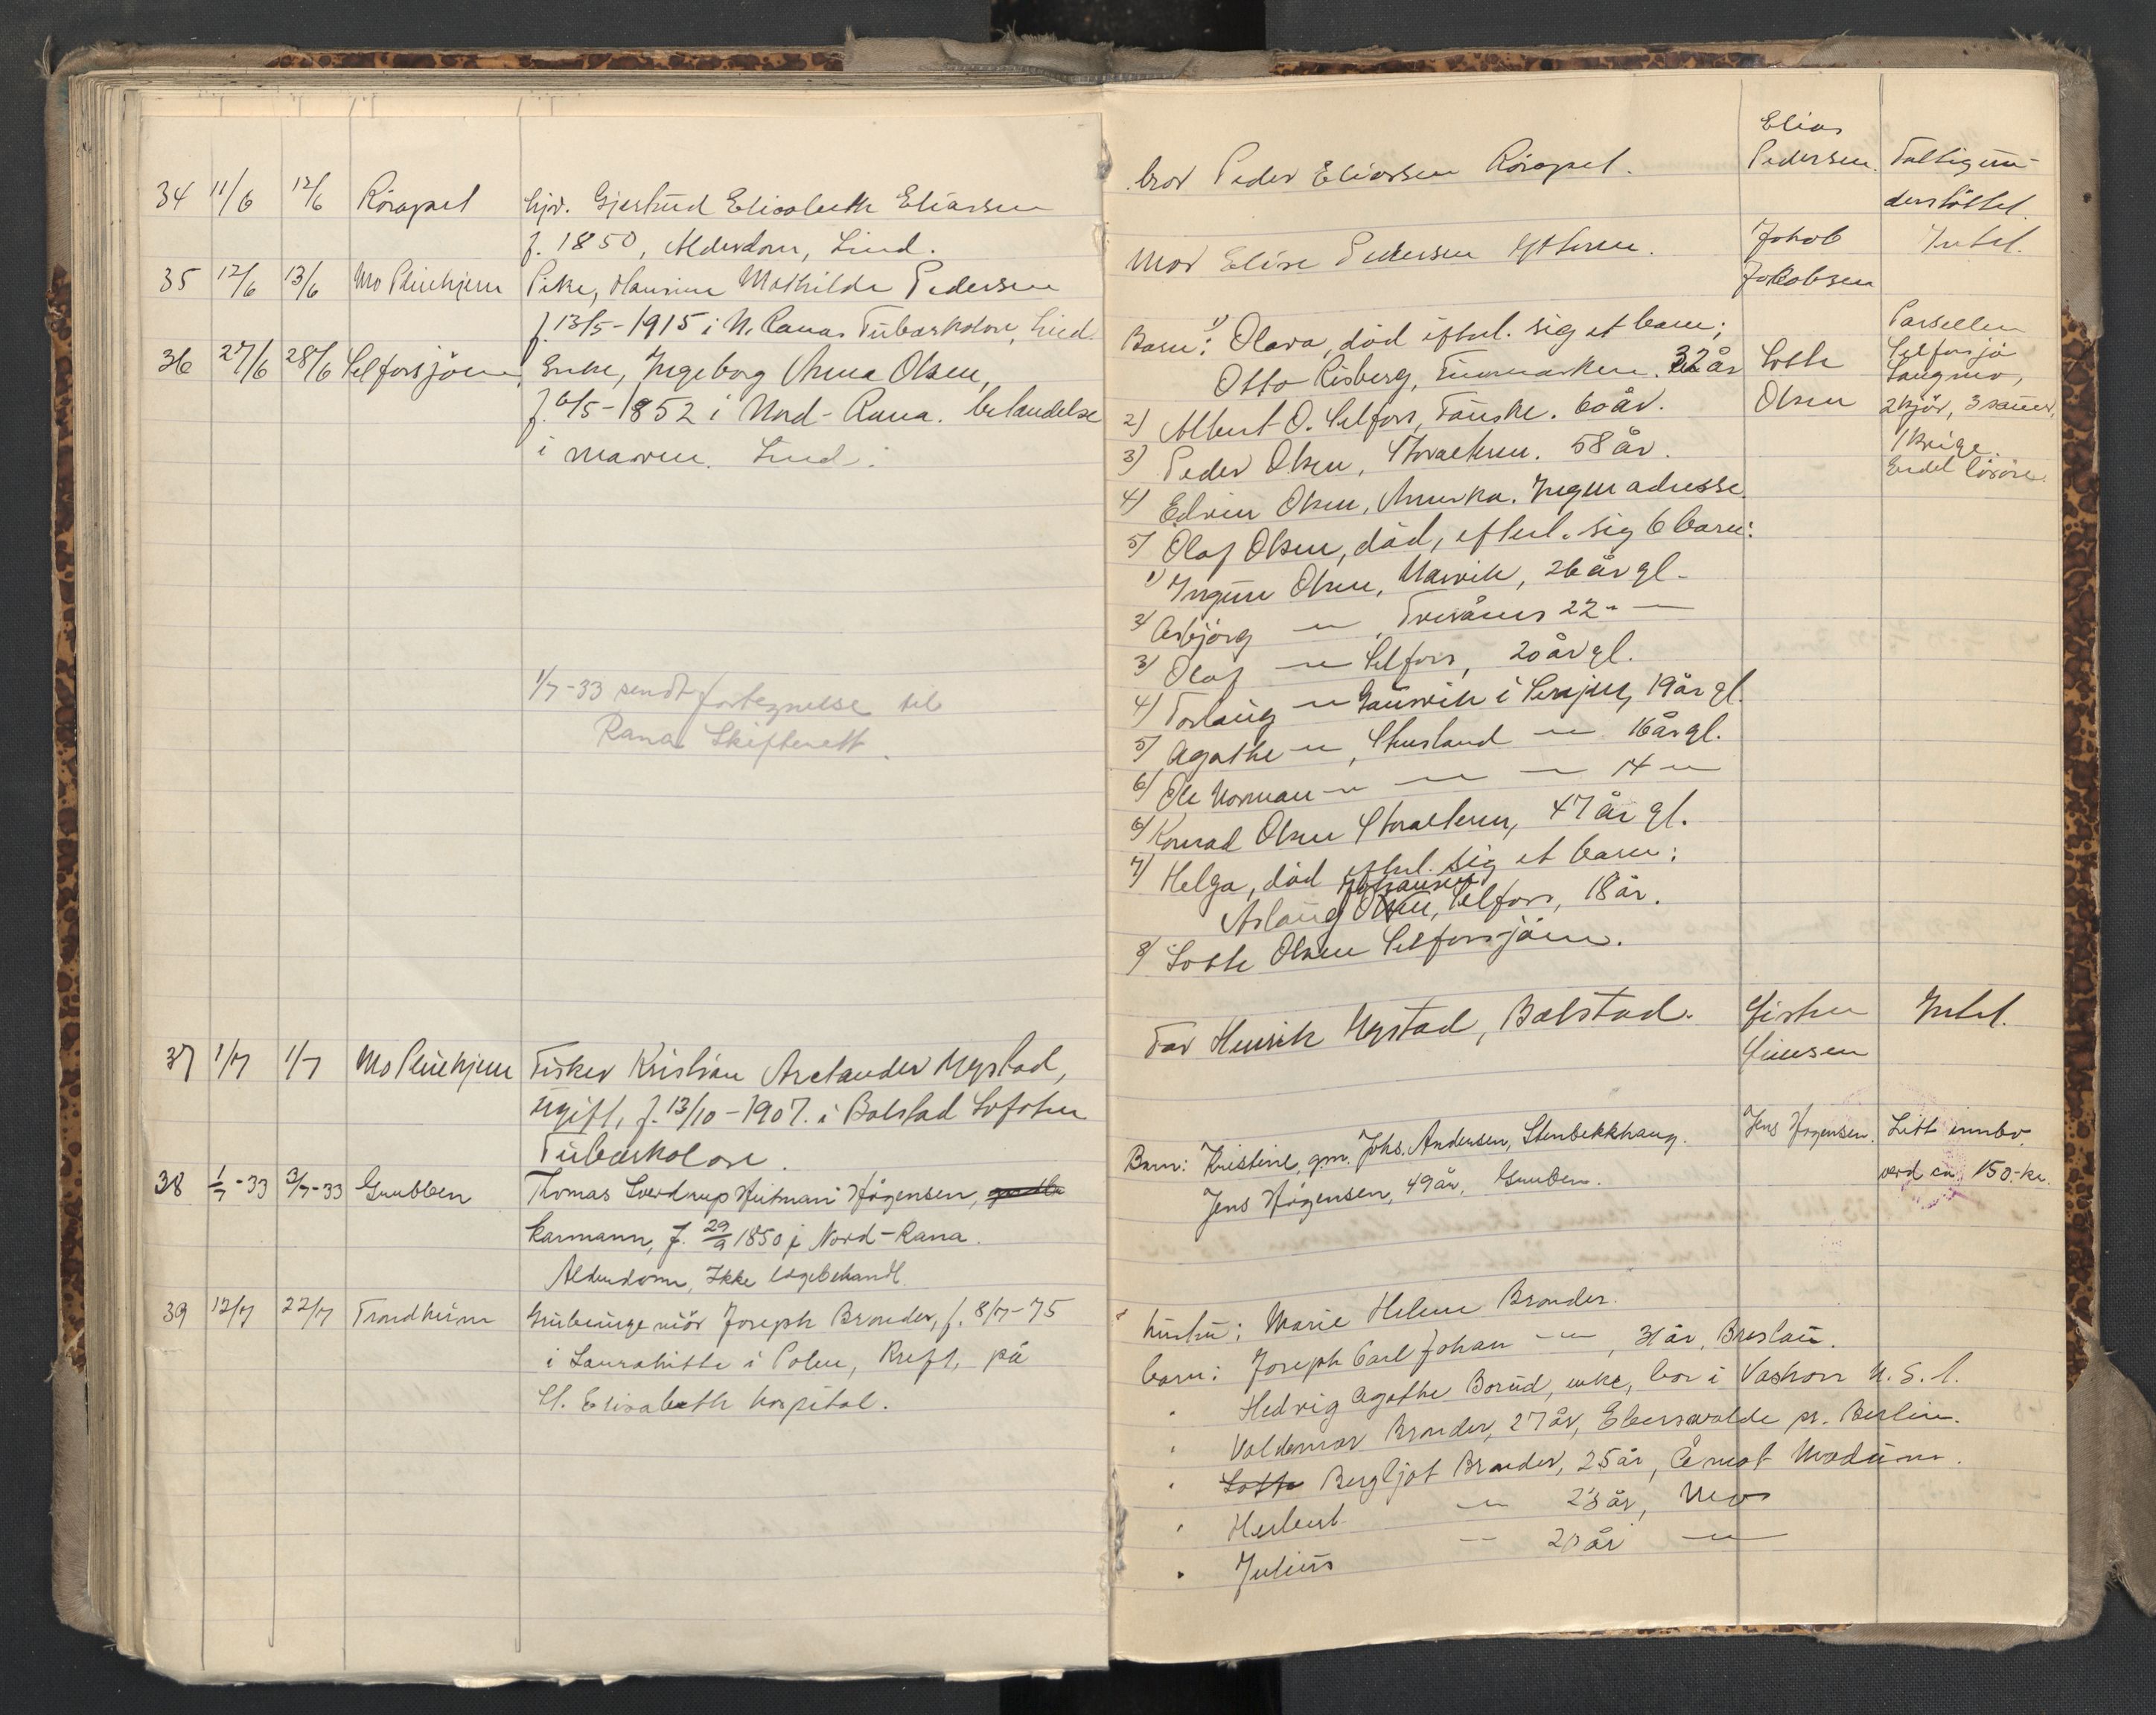 34 11/6 12/6 Röragel hjv. Gjertrud Elisabeth Eliassen
f. 1850, Alderdom, Lind.
35 12/6 13/6 Mo Pleiehjem Pike, Mathilde Pedersen
f. 13/5-1915 i N. Rana. Tuberkolose, Lind.
36 27/6 28/6 Selforsjöen, Enke, Ingeborg Anna Olsen,
f. 6/5-1852 i Nord-Rana. betendelse
i maven. Lind.
1/7-33 sendt fortegnelse til
Rana Skifterett.
37 1/7 1/7 Mo Pleiehjem Fisker Kristian Arelander Mystad,
ugift, f. 13/10-1907. i Balstad Lofoten
Tuberkolose.
38 1/7-33 3/7-33 Grubben Thomas Sverdrup Heitman Högensen,
karmann, f. 29/9 1850 i Nord-Rana.
Alderdom, Ikke legebehandl.
39 12/7 22/7 Trondheim Grubeingeniör Joseph Brander, f. 8/7-75
i Laurahütte i Polen, Kreft, på
St. Elisabeth hospital.
bror Peder Eliassen Röragel. Elias
Pedersen. Fattigun-
derstöttet.
Mor Elise Pedersen Ytteren. Jakob
Jakobsen Intet.
Barn: 1) Olava, död efterl. sig et barn;
Otto Risberg, Finmarken. 32 år
2) Albert O. Selfors, Fauske. 60 år.
3) Peder Olsen, Storalteren. 58 år.
4) Edvin Olsen, Amerka. Ingen adresse.
5) Olaf Olsen, död, efterl. sig 6 barn:
1) Ingunn Olsen, Narvik, 26 år gl.
2) Asbjörg -"-, 22 -"-
3) Olaf -"- Selfors, 20 år gl.
4) Torlaug -"- Gausvik i Senjen, 19 år gl.
5) Agathe -"-, -"- 16 år gl.
6) Ole Norman -"- -"- - 14 -"-
6) Konrad Olsen Storalteren, 47 år gl.
7) Helga, död efterl. sig et barn:
Johansen
Aslaug Olsen, Selfors, 18 år.
8) Lotte Olsen Selforsjöen.
Lotte
Olsen
Parsellen
Selforsjö
Langmo,
2 kjör, 3 sauer,
1 kvige.
Endel lösöre.
Far Henrik Mystad, Balstad. Jensen Intet.
Barn: Kristine, gm. Johs. Andersen, Stenbekkhaug.
Jens Högensen, 49 år, Gruben.
Jens Högensen. Litt innbo,
verd ca. 150.- kr.
hustru: Marie Helene Brander.
barn: Joseph Carl Johan -"-, 31 år, Breslau.
" Hedvig Agathe Borud, enke, bor i Vashon U.S.A.
" Valdemar Brander, 27 år, Eberswalde pr. Berlin.
" Lotte Bergljot Brander, 25 år, Åmot Modum.
" Herbert -"- 23 år, Mo
" Julius -"- 20 år -"-